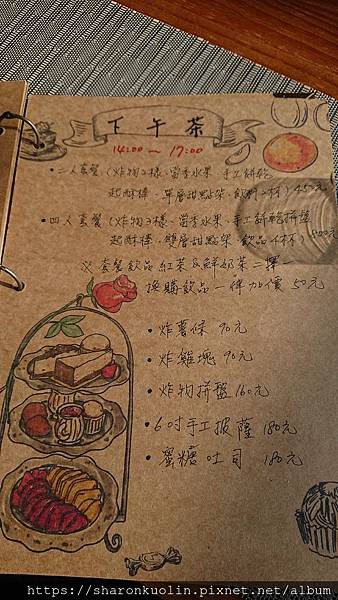 下午茶
14:00～17:00
•二人套餐(炸物2樣、當季水果、手工餅乾
起酥棒、單層甜點架、飲料2杯)450元
•四人套餐(炸物3樣、當季水果、手工餅乾拼盤
起酥棒、雙層甜點架、飲品4杯)
※套餐飲品紅茶&鮮奶茶二擇一
換購飲品一律加價 50元
•炸薯條 90元
•炸雞塊 90元
•炸物拼盤 160元
•6吋手工披薩 180元
•蜜糖吐司 180元
https://sharonkuolin.pixnet.net/album